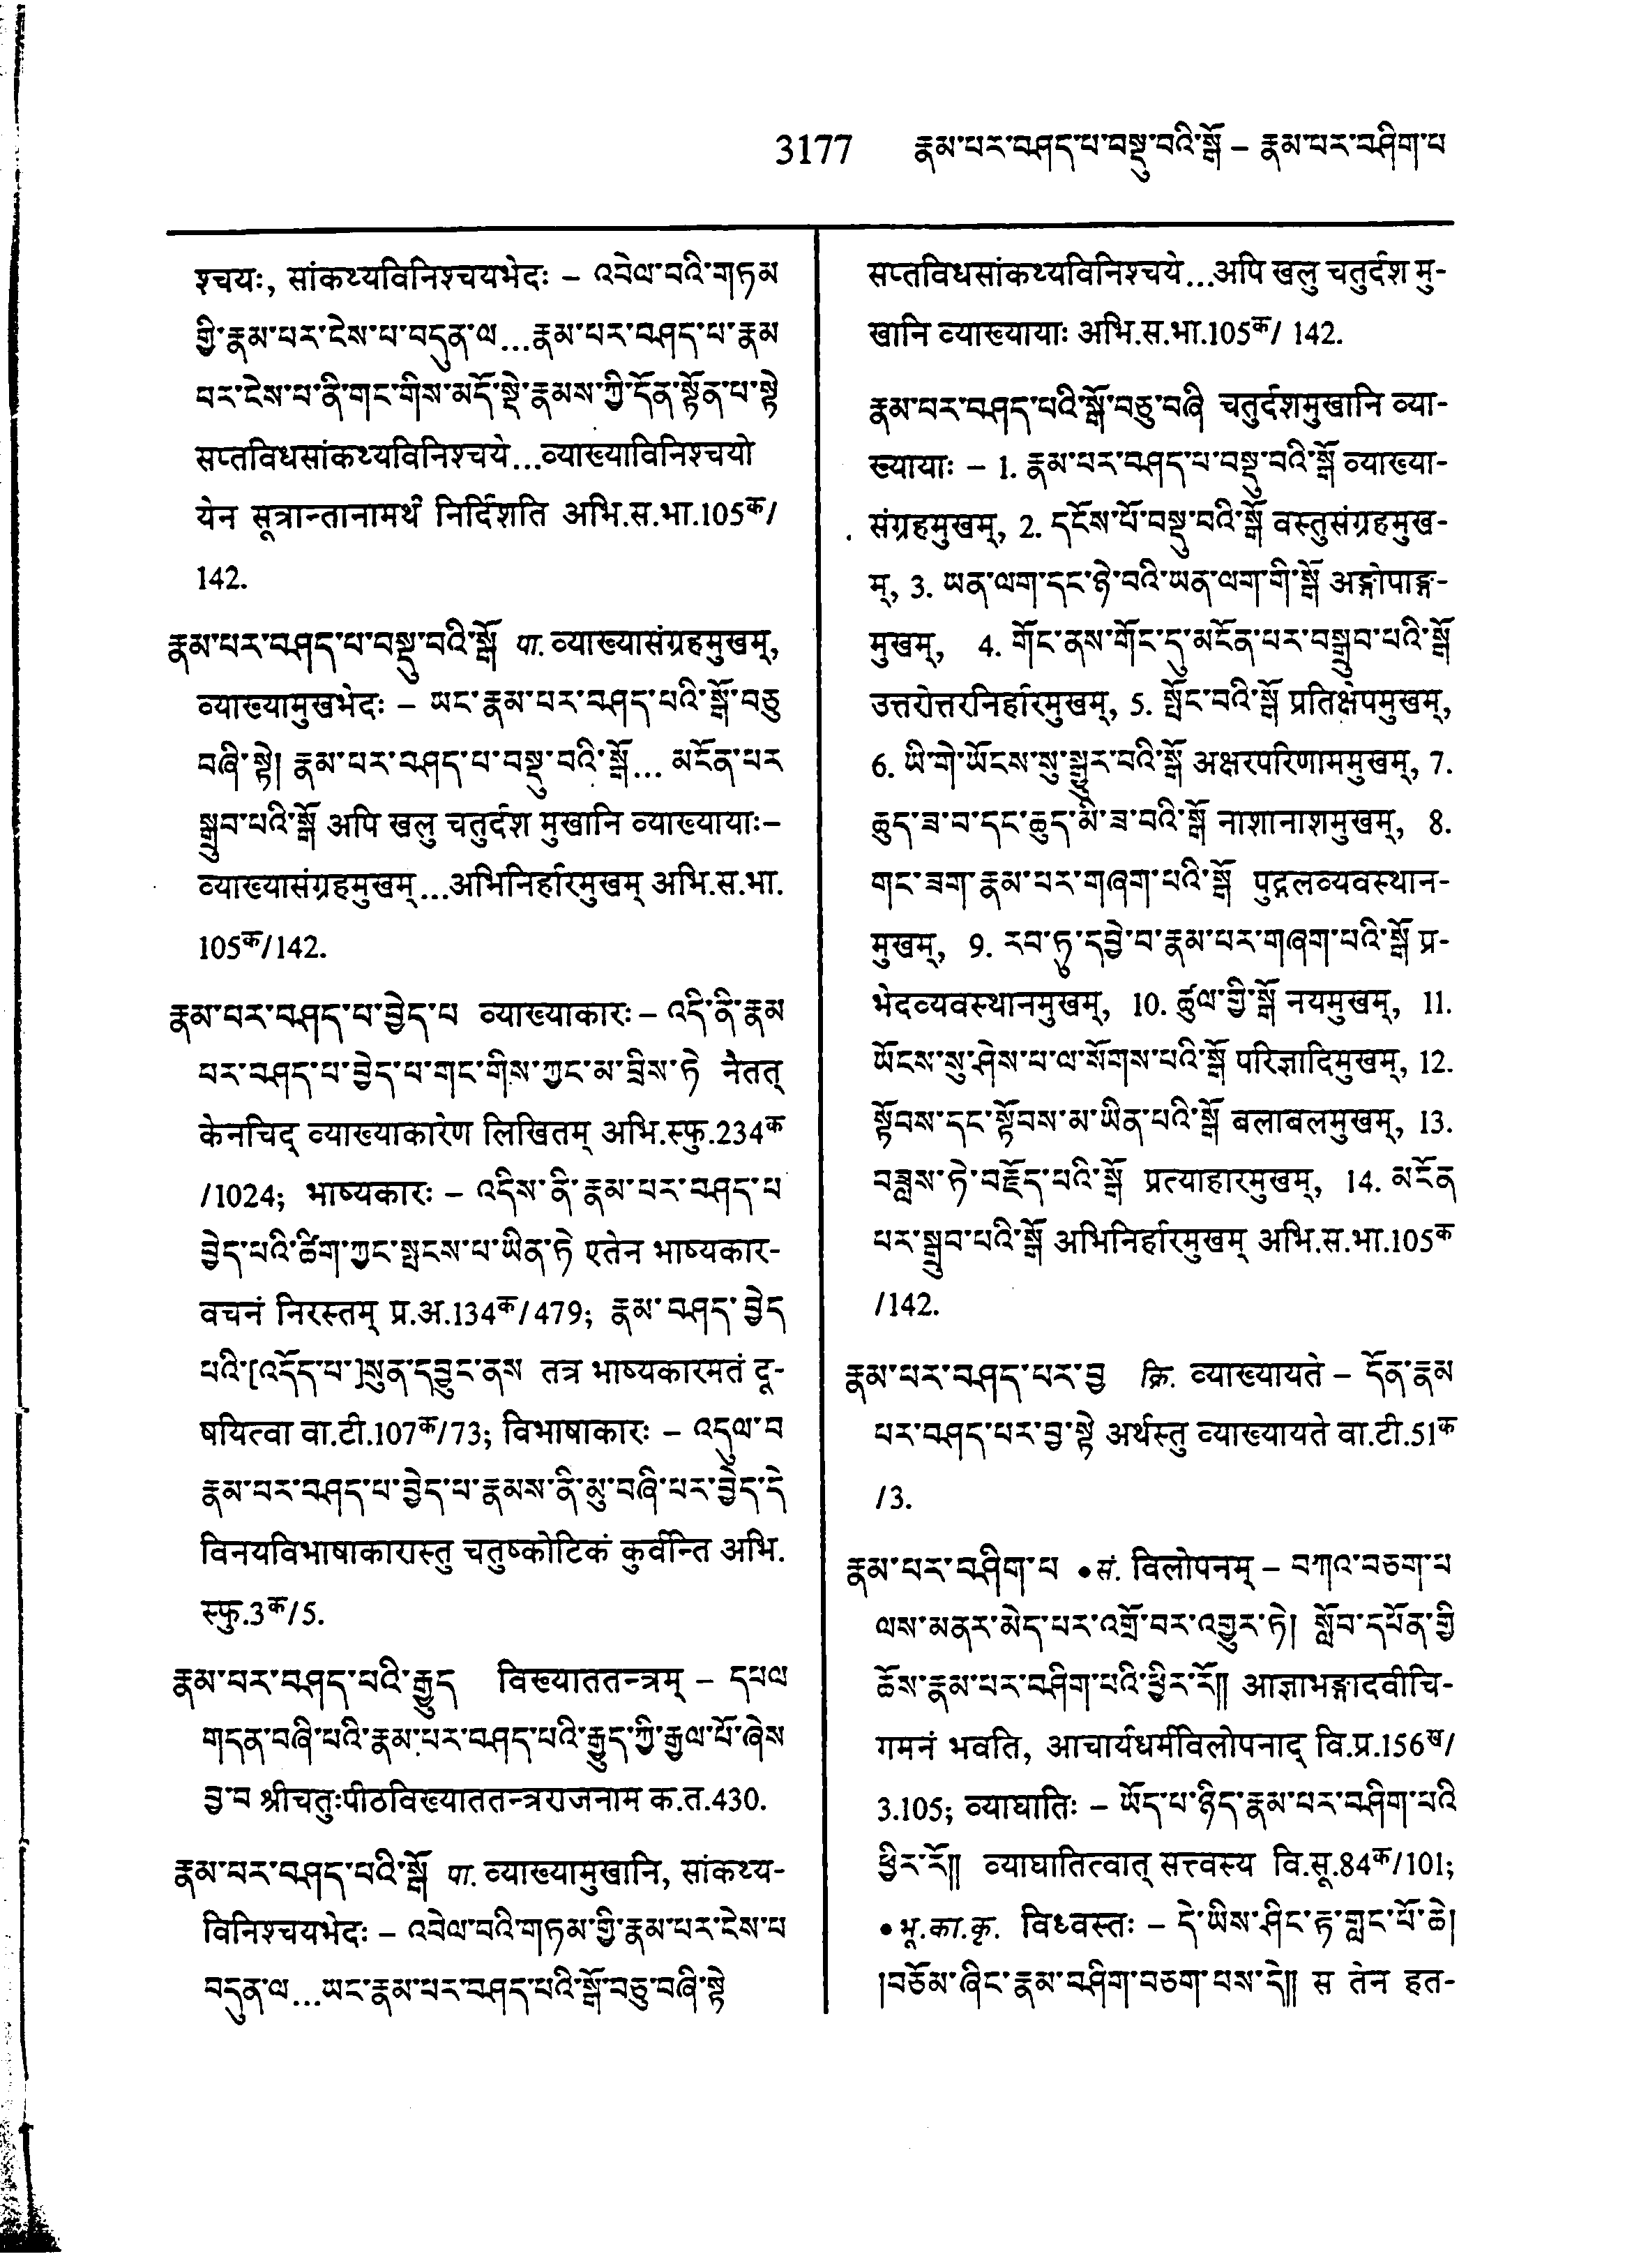 3177 རྣམ་པར་བཤད་པ་བསྡུ་བའི་སྒོ – རྣམ་པར་བཤིག་པ
श्चयः, सांकथ्यविनिश्चयभेदः – འབེལ་བའི་གཏམ
གྱི་རྣམ་པར་ངེས་པ་བདུན་ལ...རྣམ་པར་བཤད་པ་རྣམ
པར་ངེས་པ་ནི་གང་གིས་མདོ་སྡེ་རྣམས་ཀྱི་དོན་སྟོན་པ་སྟེ
सप्तविधसांकथ्यविनिश्चये...व्याख्याविनिश्चयो
येन सूत्रान्तानामर्थं निर्दिशति अभि.स.भा.105क/
142.
རྣམ་པར་བཤད་པ་བསྡུ་བའི་སྒོ पा. व्याख्यासंग्रहमुखम्,
व्याख्यामुखभेदः – ཡང་རྣམ་པར་བཤད་པའི་སྒོ་བཅུ
བཞི་སྟེ། རྣམ་པར་བཤད་པ་བསྡུ་བའི་སྒོ... མངོན་པར
སྒྲུབ་པའི་སྒོ अपि खलु चतुर्दश मुखानि व्याख्यायाः–
व्याख्यासंग्रहमुखम्...अभिनिर्हारमुखम् अभि.स.भा.
105क/142.
རྣམ་པར་བཤད་པ་བྱེད་པ व्याख्याकारः – འདི་ནི་རྣམ
པར་བཤད་པ་བྱེད་པ་གང་གིས་ཀྱང་མ་བྲིས་ཏེ नैतत्
केनचिद् व्याख्याकारेण लिखितम् अभि.स्फु.234क
/1024; भाष्यकारः – འདིས་ནི་རྣམ་པར་བཤད་པ
བྱེད་པའི་ཚིག་ཀྱང་སྤངས་པ་ཡིན་ཏེ एतेन भाष्यकार-
वचनं निरस्तम् प्र.अ.134क/479; རྣམ་བཤད་བྱེད
པའི་[འདོད་པ་]སུན་དབྱུང་ནས तत्र भाष्यकारमतं दू-
षयित्वा वा.टी.107क/73; विभाषाकारः – འདུལ་བ
རྣམ་པར་བཤད་པ་བྱེད་པ་རྣམས་ནི་མུ་བཞི་པར་བྱེད་དེ
विनयविभाषाकारास्तु चतुष्कोटिकं कुर्वन्ति अभि.
स्फु.3क/5.
རྣམ་པར་བཤད་པའི་རྒྱུད विख्याततन्त्रम् – དཔལ
གདན་བཞི་པའི་རྣམ་པར་བཤད་པའི་རྒྱུད་ཀྱི་རྒྱལ་པོ་ཞེས
བྱ་བ श्रीचतुःपीठविख्याततन्त्रराजनाम क.त.430.
རྣམ་པར་བཤད་པའི་སྒོ पा. व्याख्यामुखानि, सांकथ्य-
विनिश्चयभेदः – འབེལ་བའི་གཏམ་གྱི་རྣམ་པར་ངེས་པ
བདུན་ལ...ཡང་རྣམ་པར་བཤད་པའི་སྒོ་བཅུ་བཞི་སྟེ
सप्तविधसांकथ्यविनिश्चये...अपि खलु चतुर्दश मु-
खानि व्याख्यायाः अभि.स.भा.105क/ 142.
རྣམ་པར་བཤད་པའི་སྒོ་བཅུ་བཞི चतुर्दशमुखानि व्या-
ख्यायाः – 1. རྣམ་པར་བཤད་པ་བསྡུ་བའི་སྒོ व्याख्या-
संग्रहमुखम्, 2. དངོས་པོ་བསྡུ་བའི་སྒོ वस्तुसंग्रहमुख-
म्, 3. ཡན་ལག་དང་ཉེ་བའི་ཡན་ལག་གི་སྒོ अङ्गोपाङ्ग-
मुखम्, 4. གོང་ནས་གོང་དུ་མངོན་པར་བསྒྲུབ་པའི་སྒོ
उत्तरोत्तरनिर्हारमुखम्, 5. སྤོང་བའི་སྒོ प्रतिक्षेपमुखम्,
6. ཡི་གེ་ཡོངས་སུ་སྒྱུར་བའི་སྒོ अक्षरपरिणाममुखम्, 7.
ཆུད་ཟ་བ་དང་ཆུད་མི་ཟ་བའི་སྒོ नाशानाशमुखम्, 8.
གང་ཟག་རྣམ་པར་གཞག་པའི་སྒོ पुद्गलव्यवस्थान-
मुखम्, 9. རབ་ཏུ་དབྱེ་བ་རྣམ་པར་གཞག་པའི་སྒོ प्र-
भेदव्यवस्थानमुखम्, 10. ཚུལ་གྱི་སྒོ नयमुखम्, 11.
ཡོངས་སུ་ཤེས་པ་ལ་སོགས་པའི་སྒོ परिज्ञादिमुखम्, 12.
སྟོབས་དང་སྟོབས་མ་ཡིན་པའི་སྒོ बलाबलमुखम्, 13.
བཟླས་ཏེ་བརྗོད་པའི་སྒོ प्रत्याहारमुखम्, 14. མངོན
པར་སྒྲུབ་པའི་སྒོ अभिनिर्हारमुखम् अभि.स.भा.105क
/142.
རྣམ་པར་བཤད་པར་བྱ क्रि. व्याख्यायते – དོན་རྣམ
པར་བཤད་པར་བྱ་སྟེ अर्थस्तु व्याख्यायते वा.टी.51क
/3.
རྣམ་པར་བཤིག་པ •सं. विलोपनम् – བཀའ་བཅག་པ
ལས་མནར་མེད་པར་འགྲོ་བར་འགྱུར་ཏེ། སློབ་དཔོན་གྱི
ཆོས་རྣམ་པར་བཤིག་པའི་ཕྱིར་རོ།། आज्ञाभङ्गादवीचि-
गमनं भवति, आचार्यधर्मविलोपनाद् वि.प्र.156ख/
3.105; व्याघातिः – ཡོད་པ་ཉིད་རྣམ་པར་བཤིག་པའི
ཕྱིར་རོ།། व्याघातित्वात् सत्त्वस्य वि.सू.84क/101;
•भू.का.कृ. विध्वस्तः – དེ་ཡིས་ཤིང་རྟ་གླང་པོ་ཆེ།
།བཅོམ་ཞིང་རྣམ་བཤིག་བཅག་པས་དེ།། स तेन हत-